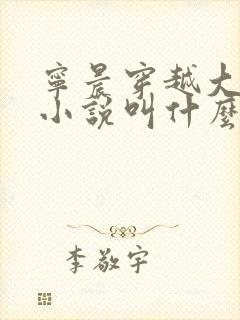 寧晨穿越大
小說叫什麼
李敬宇